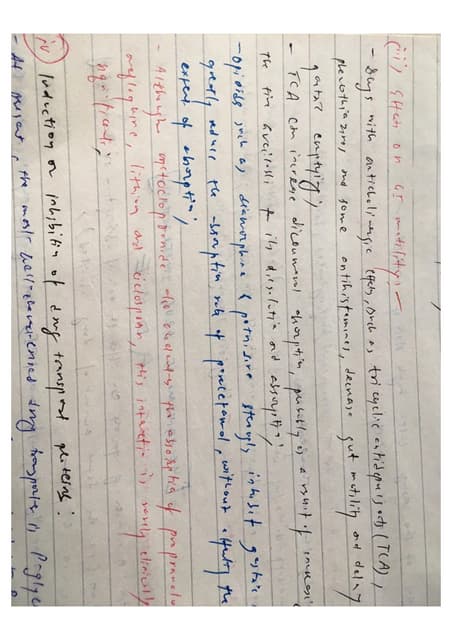 (iii) Effect on GI motility :-
- Drugs with anticholinergic effects, such as tricyclic antidepressants (TCA),
phenothiazines, and some antihistamines, decrease gut motility and delay
gastric emptying,
- TCA can increase dicoumarol absorption, probably as a result of increasi
the time available for its dissolution and absorption,
- Opioids such as diamorphine & pethidine strongly inhibit gastric
greatly reduce the absorption rate of paracetamol, without affecting the
extent of absorption,
- Although metoclopramide the absorption of propranolo
lithium and ciclosporin, this interaction is rarely clinically
(iv) Induction or Inhibition of drug transport proteins :
- At present, the most well-characterised drug transporter is P-glyc